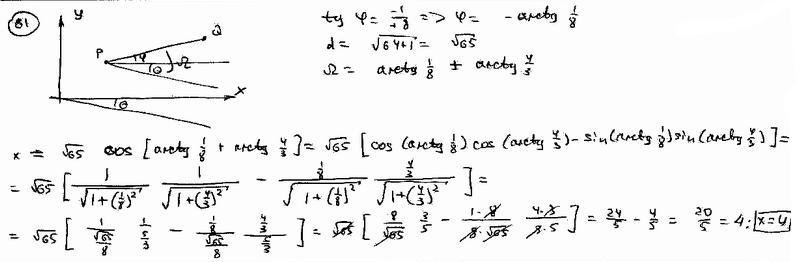 81
y
tg φ = -1/+8 => φ = - arctg 1/8
Q
d = √64+1 = √65
P φ Ω
θ
Ω = arctg 1/8 ± arctg 4/3
x
θ
x = √65 cos [arctg 1/8 + arctg 4/3] = √65 [cos (arctg 1/8) cos (arctg 4/3) - sin(arctg 1/8) sin(arctg 4/3)] =
= √65 [ 1/√(1+(1/8)²) 1/√(1+(4/3)²) - (1/8)/√(1+(1/8)²) (4/3)/√(1+(4/3)²) ] =
= √65 [ 1/(√65/8) 1/(5/3) - (1/8)/(√65/8) (4/3)/(5/3) ] = √65 [ 8/√65 3/5 - 1·8/8·√65 4·3/3·5 ] = 24/5 - 4/5 = 20/5 = 4; x=4